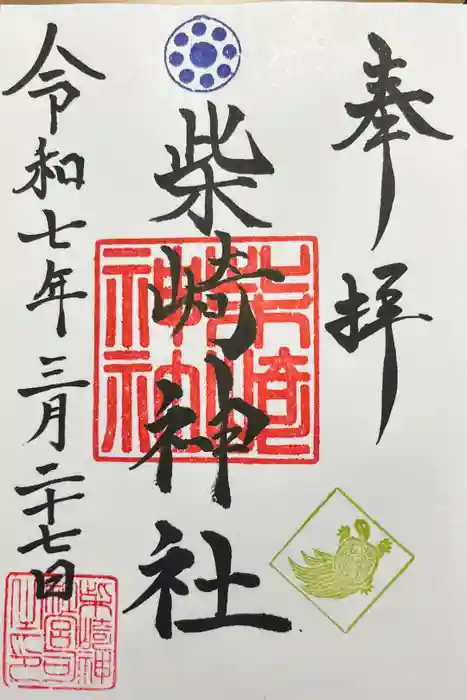 奉拝
柴崎神社
令和七年三月二十七日
柴崎神社
柴崎神社宮司之印